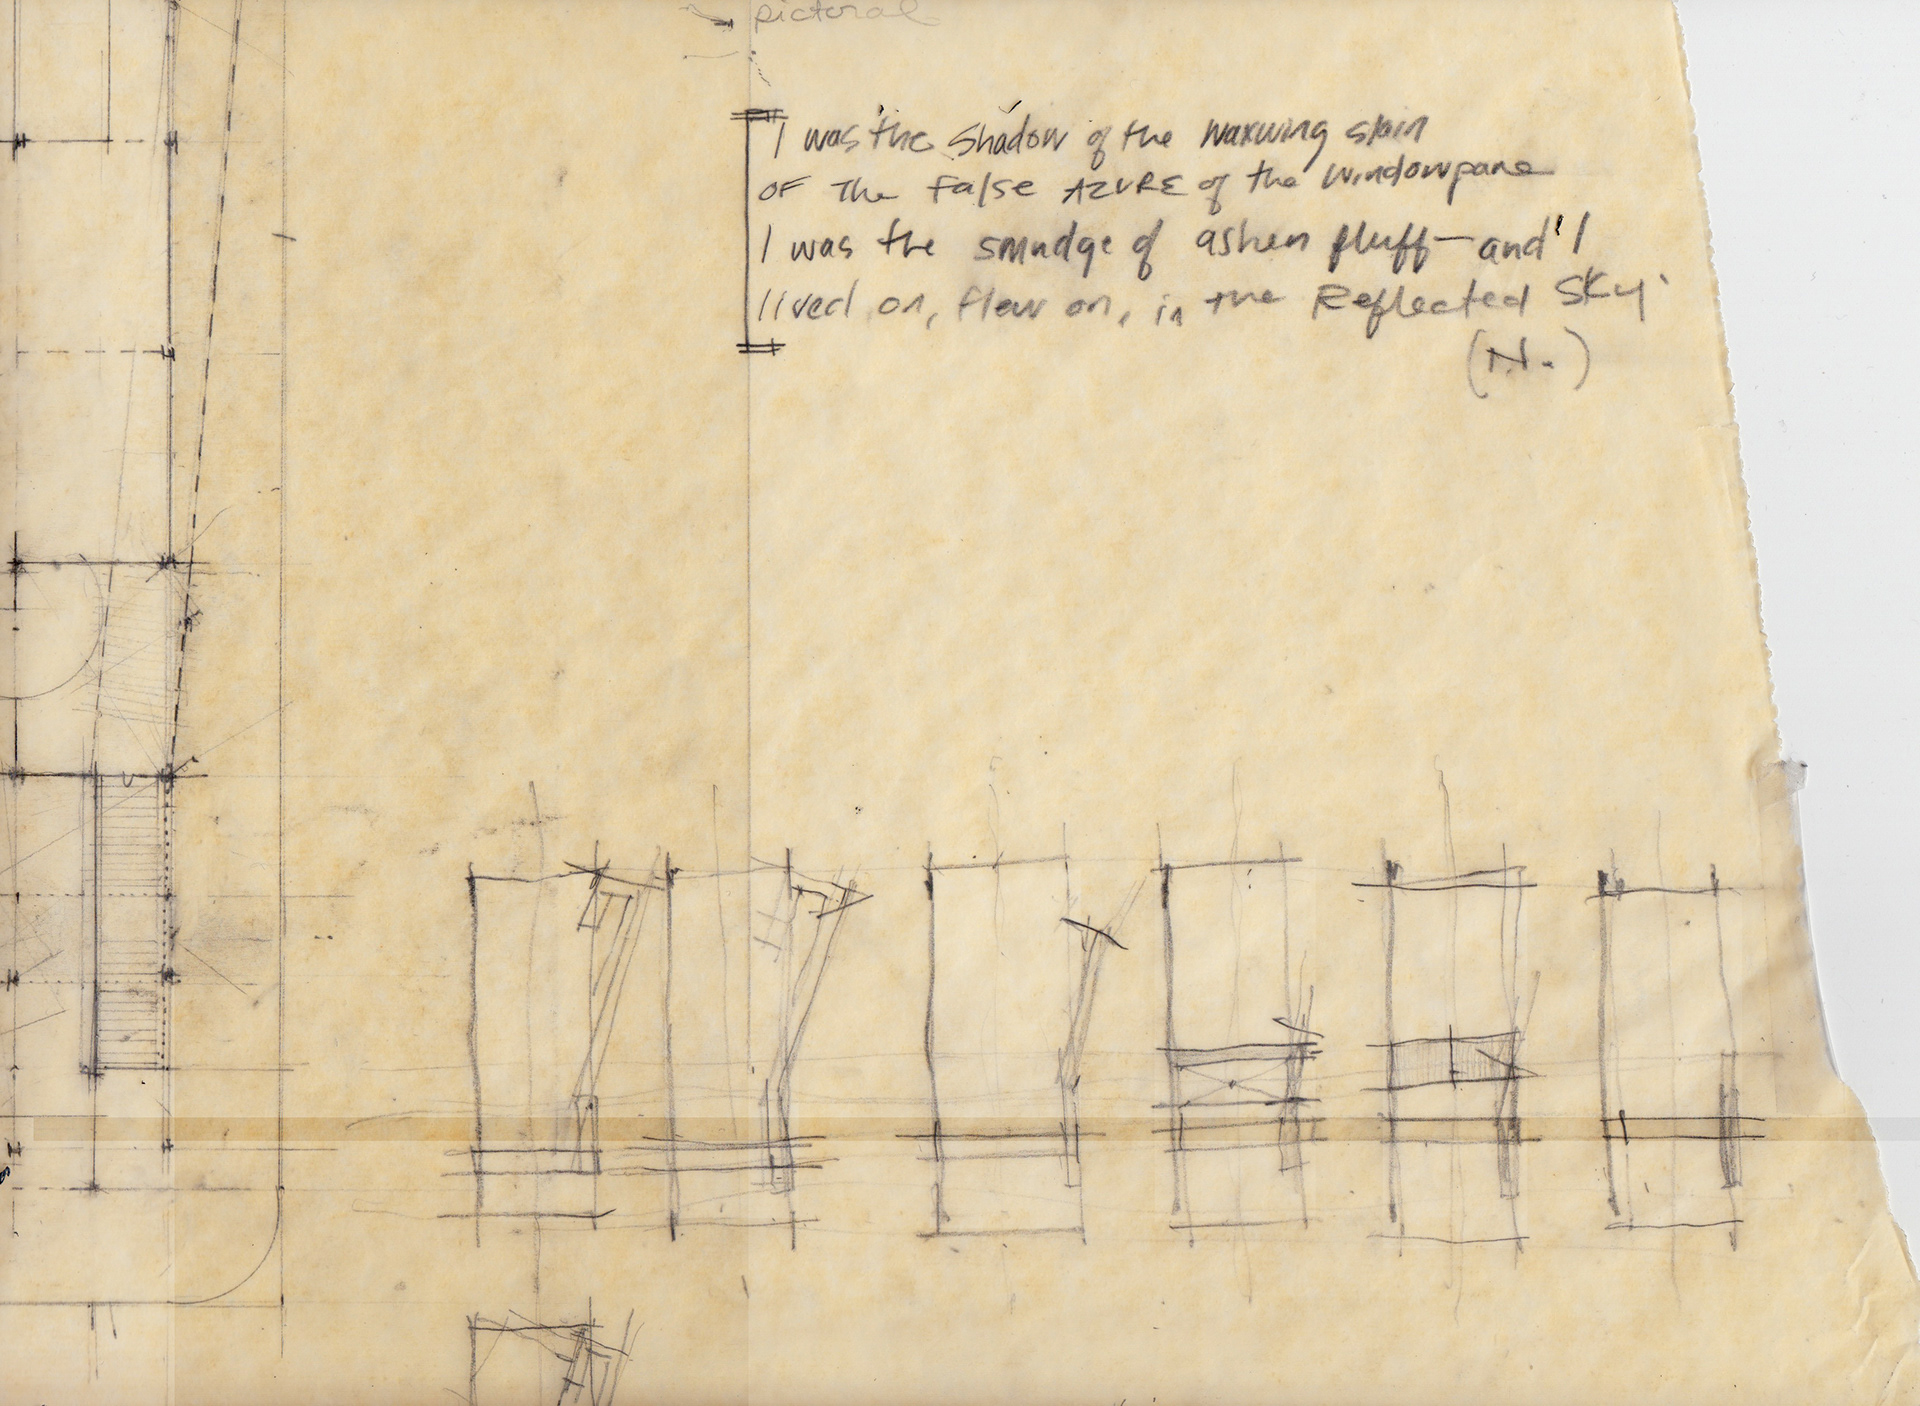 pictoral
I was the Shadow of the waxwing slain
OF The False AZURE of the windowpane
I was the smudge of ashen fluff—and I
lived on, flew on, in the Reflected Sky.
(N.)